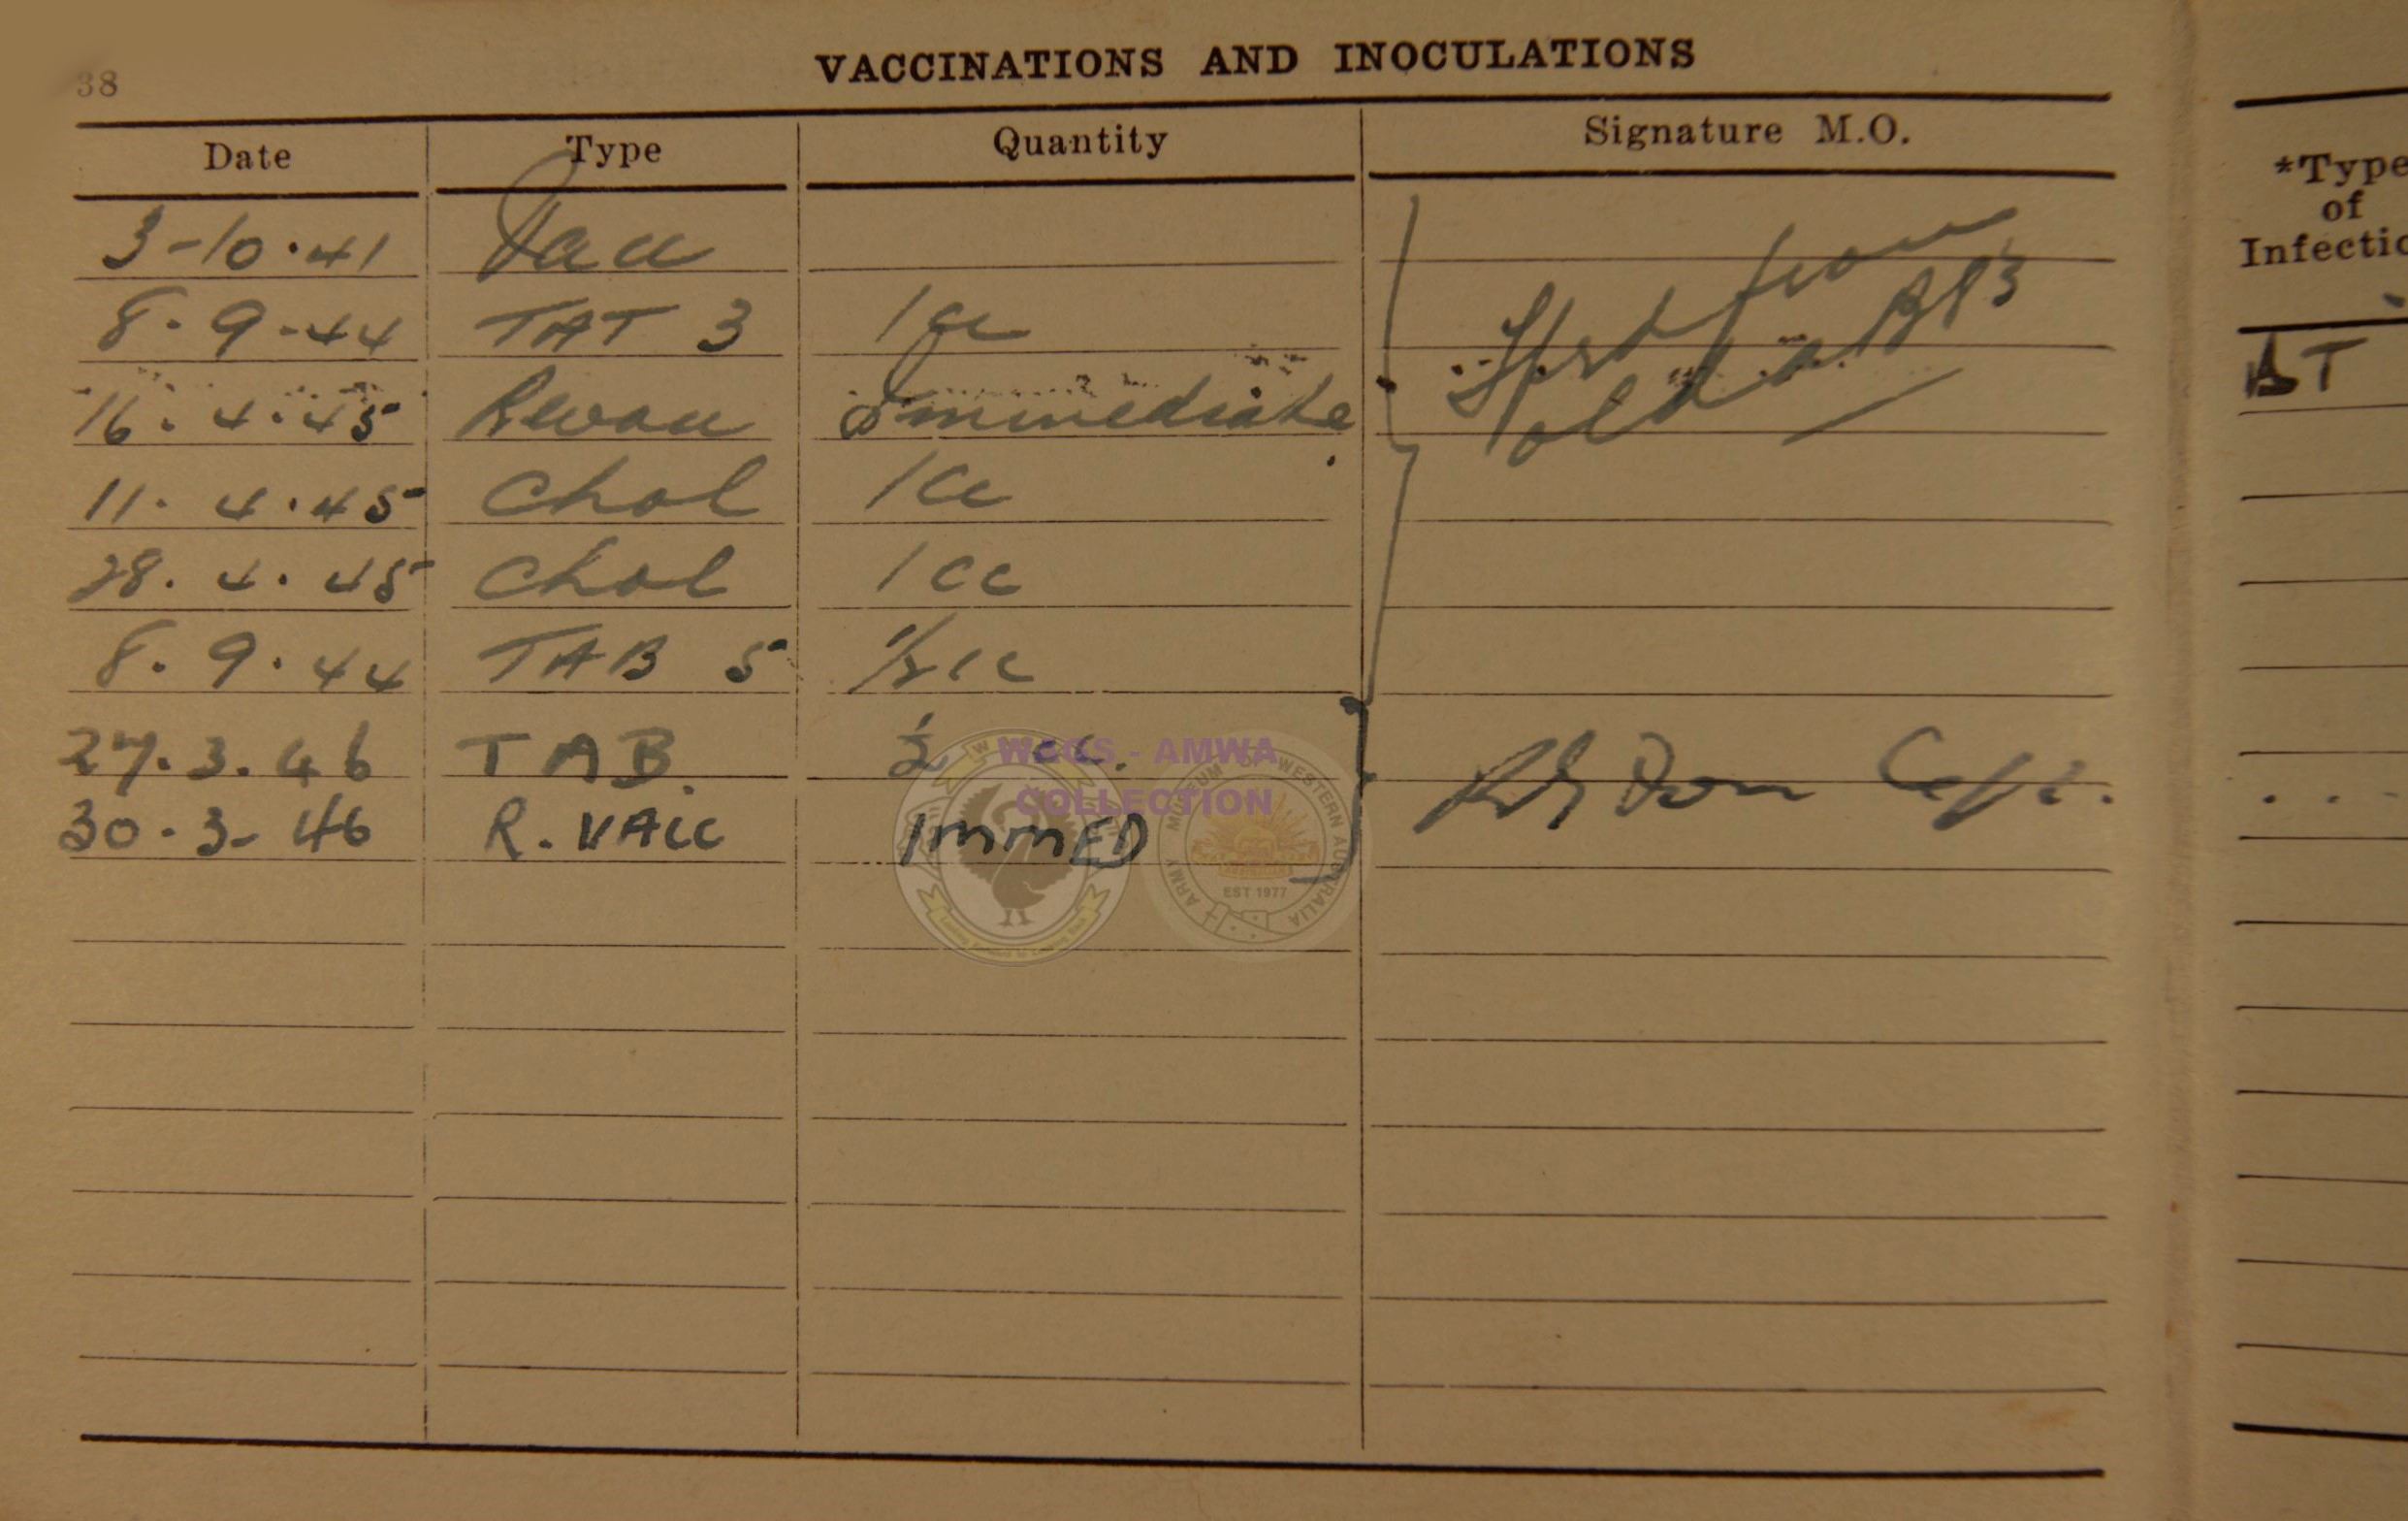 38
VACCINATIONS AND INOCULATIONS
Date Type Quantity Signature M.O.
3-10.41 Vacc
8.9.44 TAT 3 1cc
16.4.45 Revacc Immediate
11.4.45 Chol 1cc
28.4.45 Chol 1cc
8.9.44 TAB 5 ½cc
Tfrd from
old
27.3.46 TAB. ½ cc. Capt.
30.3.46 R. VACC IMMED
WAGS - AMWA
COLLECTION
ARMY MUSEUM OF WESTERN AUSTRALIA
EST 1977
*Type
of
Infectio